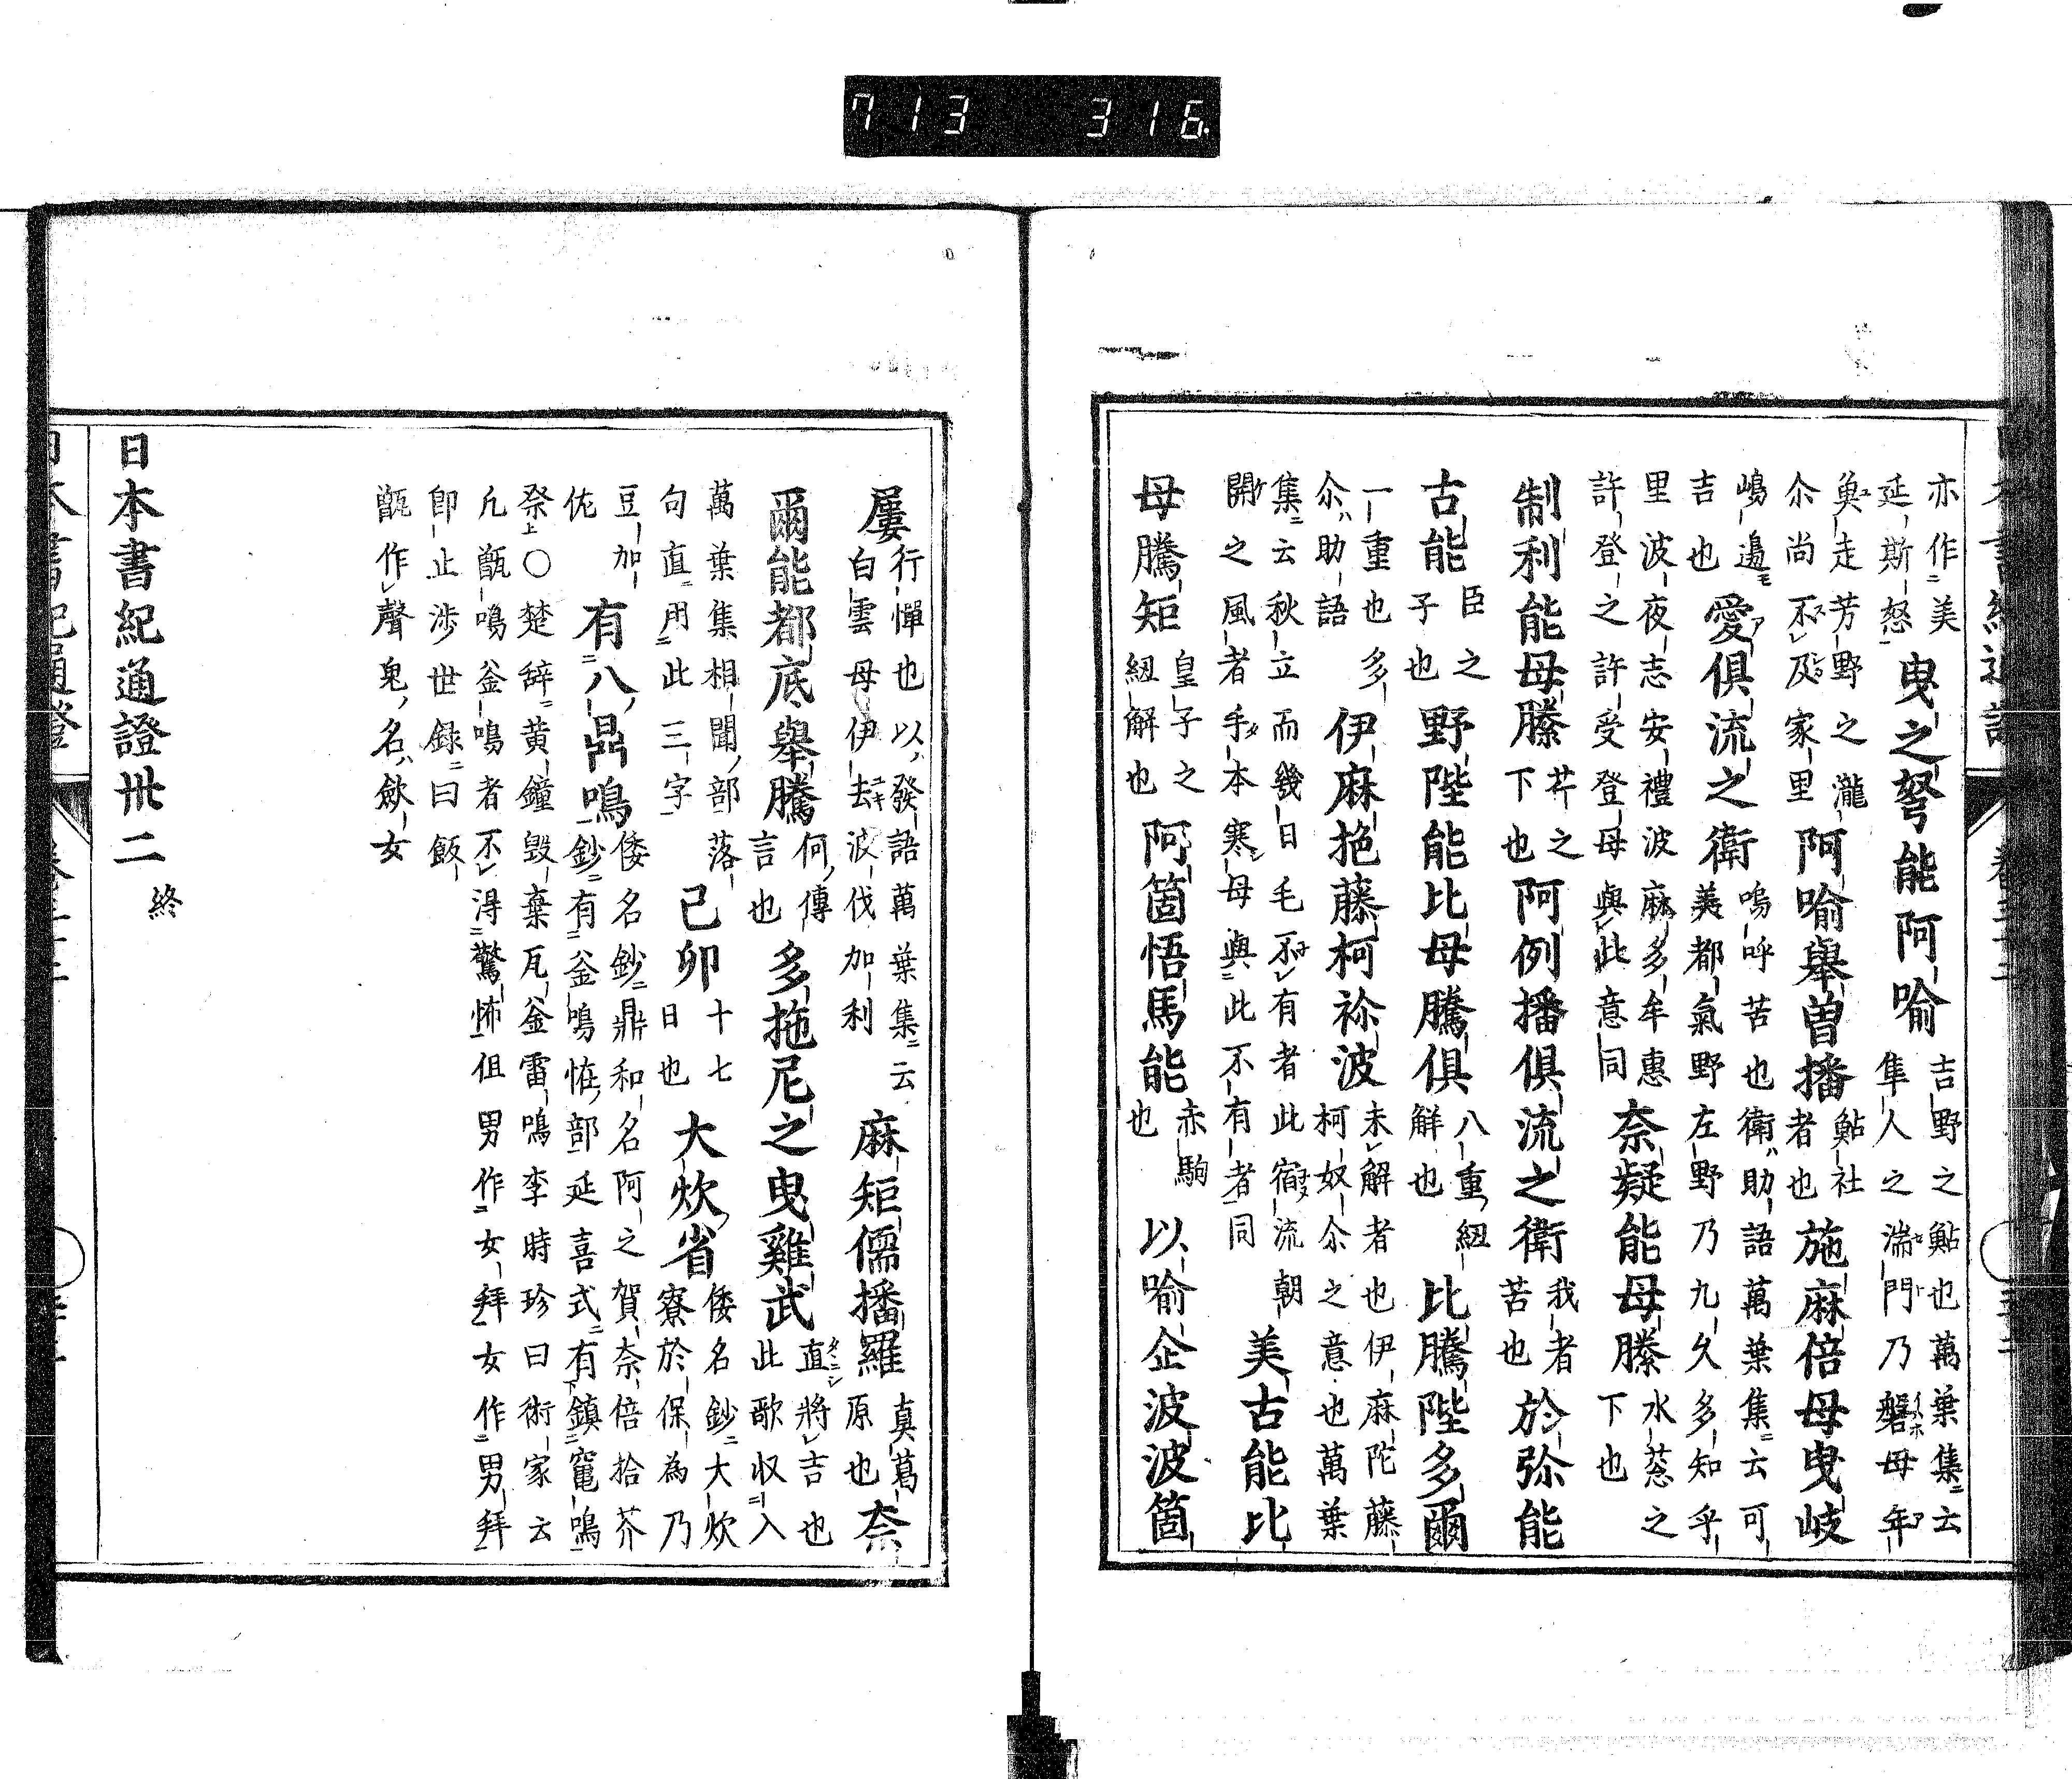 713 316
亦作美
延斯怒
曳之弩能阿喻
吉野之鮎也萬葉集云
隼人之湍門乃磐母年
魚走芳野之瀧
尒尚不及家里
阿喻舉曽播
鮎社
者也
施麻倍母曳岐
嶋邊
吉也
愛俱流之衛
嗚呼苦也衛助語萬葉集云可
美都氣野左野乃九久多知乎
里波夜志安禮波麻多牟惠
許登之許受登母與此意同
奈疑能母縢
水葱之
下也
制利能母縢
芹之
下也
阿例播俱流之衛
我者
苦也
於弥能
古能
臣之
子也
野陛能比母騰俱
八重紐
解也
比騰陛多爾
一重也多
尒助語
伊麻拖藤柯祢波
未解者也伊麻陀藤
柯奴尒之意也萬葉
集云秋立而幾日毛不有者此宿流朝
開之風者手本寒母與此不有者同
美古能比
母騰矩
皇子之
紐解也
阿箇悟馬能
赤駒
也
以喻企波波箇
屢
行憚也以發語萬葉集云
白雲母伊去波伐加利
麻矩儒播羅
真葛
原也
奈
爾能都底舉騰
何傳
言也
多拖尼之曳雞武
直將吉也
此歌収入
萬葉集相聞部
句直用此三字
落
己卯
十七
日也
大炊省
倭名鈔大炊
寮於保為乃
豆加
佐
有八鼎鳴
倭名鈔鼎和名阿之賀奈倍拾芥
鈔有釜鳴恠部延喜式有鎮竈鳴
祭〇楚辞黄鐘毀棄瓦釜雷鳴李時珍曰術家云
凢甑鳴釜鳴者不得驚怖但男作女拜女作男拜
即止渉世録曰飯
甑作聲鬼名歛女
日本書紀通證卅二
終